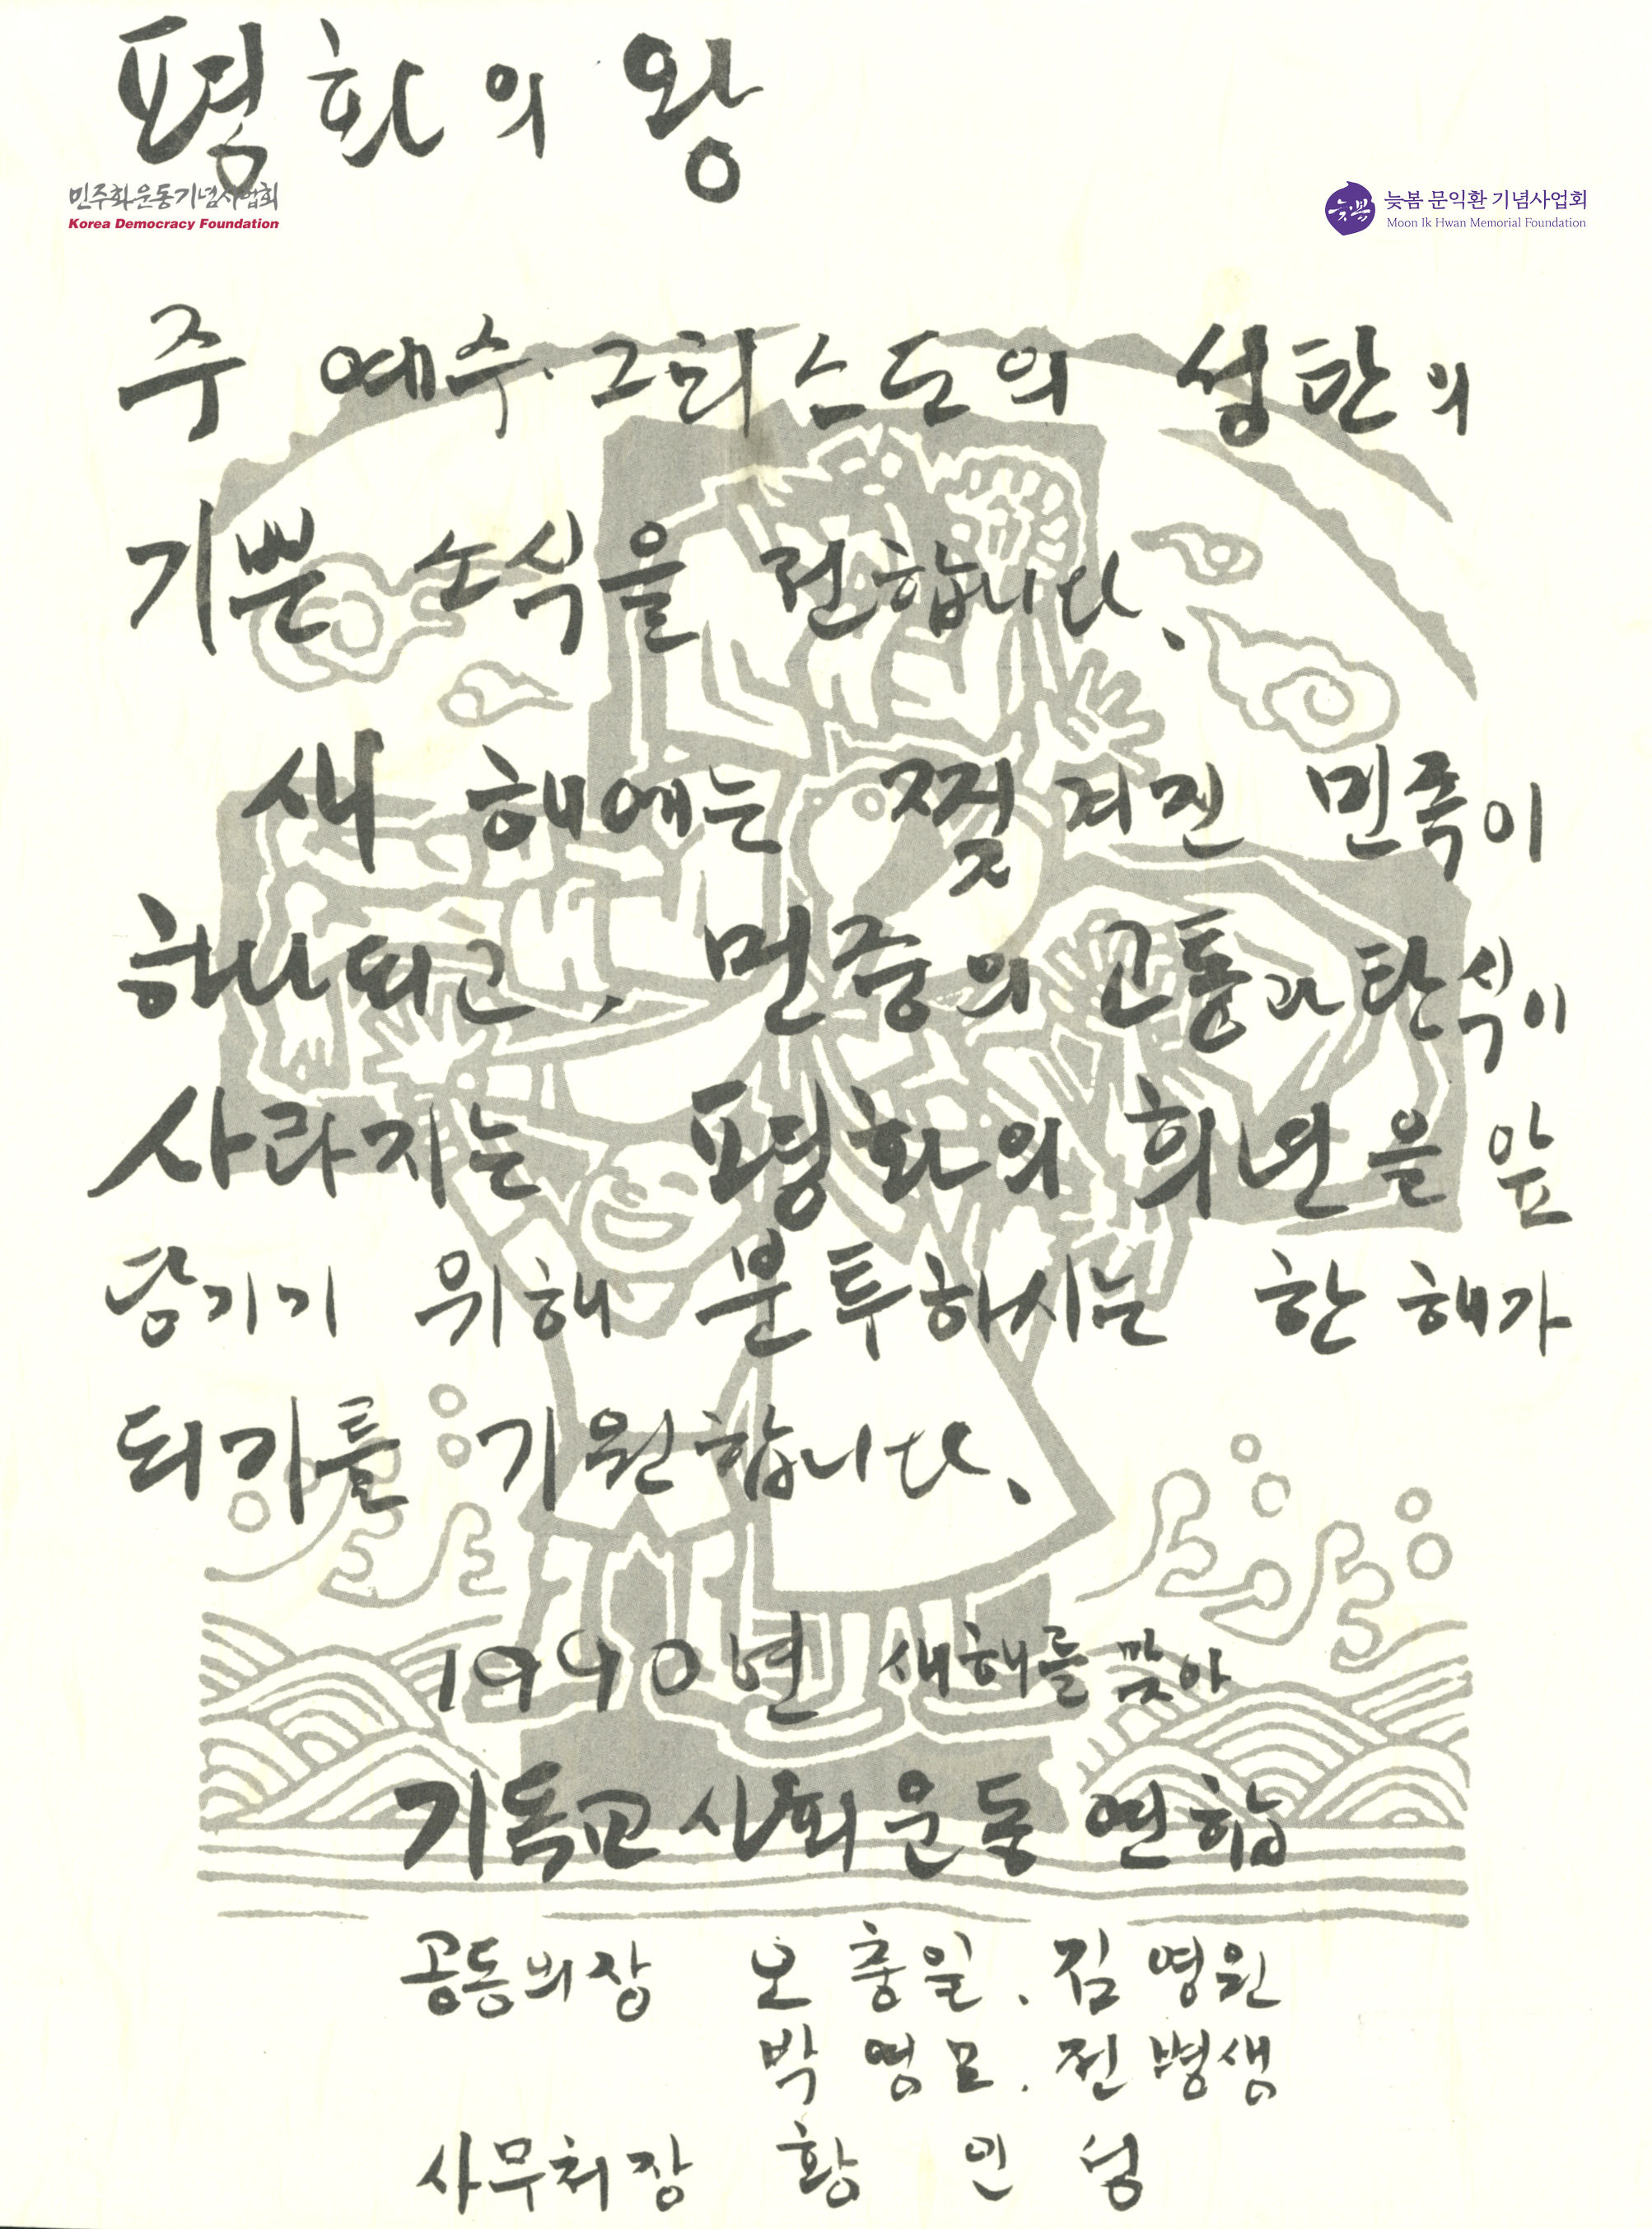 평화의 왕
민주화운동기념사업회
Korea Democracy Foundation
늦봄
늦봄 문익환 기념사업회
Moon Ik Hwan Memorial Foundation
주 예수·그리스도의 성탄의
기쁜 소식을 전합니다.
새 해에는 찢겨진 민족이
하나되고, 민중의 고통과 탄식이
사라지는 평화의 희년을 앞
당기기 위해 분투하시는 한 해가
되기를 기원합니다.
1990년 새해를 맞아
기독교 사회 운동 연합
공동의장 오충일. 김영원
박영모. 전병생
사무처장 황인성